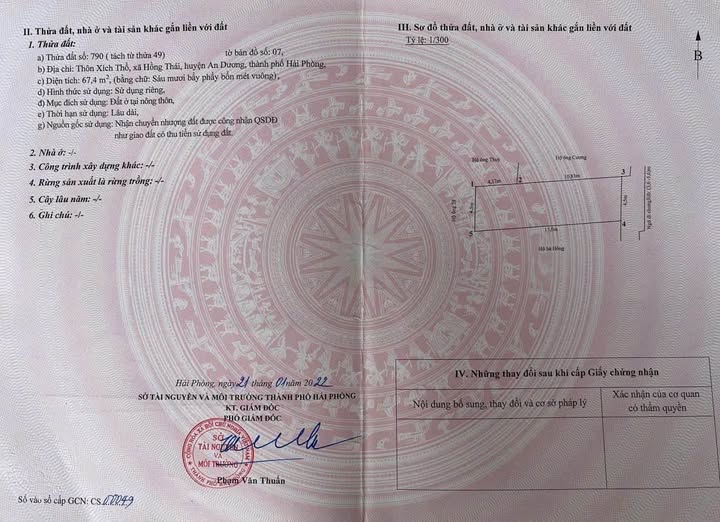 II. Thửa đất, nhà ở và tài sản khác gắn liền với đất
1. Thửa đất:
a) Thửa đất số: 790 ( tách từ thửa 49) tờ bản đồ số: 07,
b) Địa chỉ: Thôn Xích Thổ, xã Hồng Thái, huyện An Dương, thành phố Hải Phòng,
c) Diện tích: 67,4 m², (bằng chữ: Sáu mươi bảy phẩy bốn mét vuông),
d) Hình thức sử dụng: Sử dụng riêng,
đ) Mục đích sử dụng: Đất ở tại nông thôn,
e) Thời hạn sử dụng: Lâu dài,
g) Nguồn gốc sử dụng: Nhận chuyển nhượng đất được công nhận QSDĐ
như giao đất có thu tiền sử dụng đất.
2. Nhà ở: -/-
3. Công trình xây dựng khác: -/-
4. Rừng sản xuất là rừng trồng: -/-
5. Cây lâu năm: -/-
6. Ghi chú: -/-
Hải Phòng, ngày 21 tháng 01 năm 2022
SỞ TÀI NGUYÊN VÀ MÔI TRƯỜNG THÀNH PHỐ HẢI PHÒNG
KT. GIÁM ĐỐC
PHÓ GIÁM ĐỐC
SỞ
TÀI NGUYÊN
VÀ
MÔI TRƯỜNG
Phạm Văn Thuấn
Số vào sổ cấp GCN: CS
III. Sơ đồ thửa đất, nhà ở và tài sản khác gắn liền với đất
Tỷ lệ: 1/300
B
Hộ ông Thúy
Hộ ông Cương
1
2
3
4,37m
10,83m
4,5m
4
5
Hộ bà Hồng
IV. Những thay đổi sau khi cấp Giấy chứng nhận
Nội dung bổ sung, thay đổi và cơ sở pháp lý
Xác nhận của cơ quan
có thẩm quyền